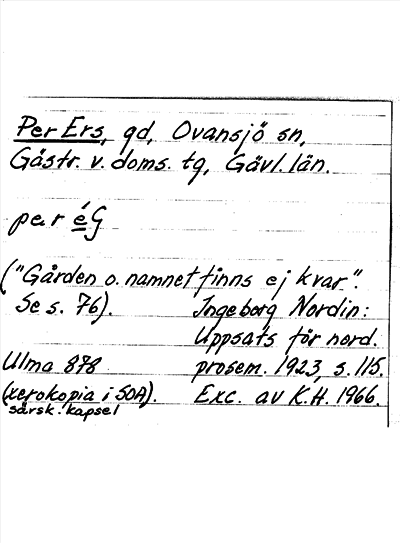 Per Ers, gd, Ovansjö sn,
Gästr. v. doms. tg, Gävl. län.
per éG
("Gården o. namnet finns ej kvar".
Se s. 76). Ingeborg Nordin:
Uppsats för nord.
Ulma 878 prosem. 1923, s. 115.
(xerokopia i SOA). Exc. av K.H. 1966.
särsk. kapsel